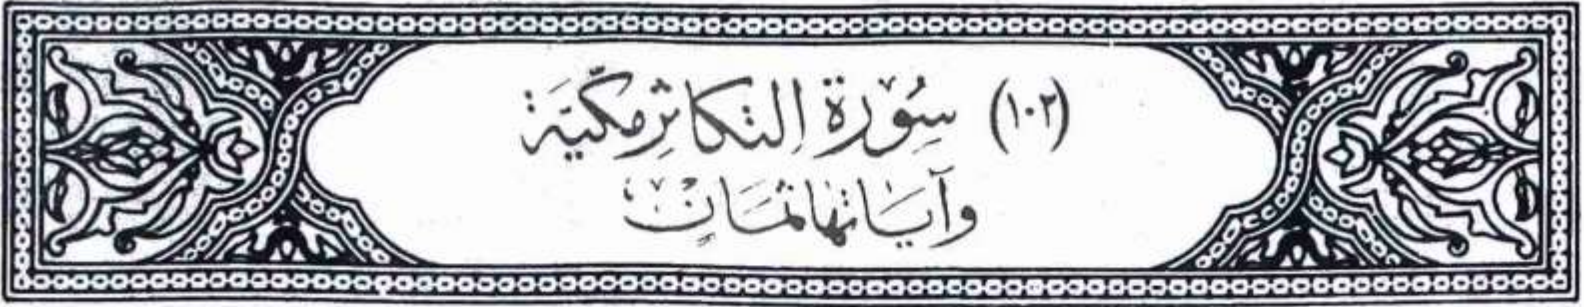 (١٠٢) سُورَة التكاثِر مكيَّة
وآيَاتها ثمَانٍ